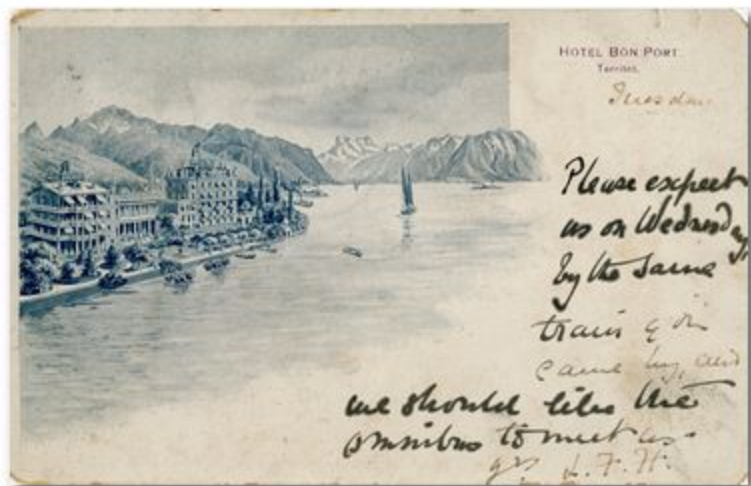 HOTEL BON PORT
Territet.
Tuesday
Please expect
us on Wednesday
by the same
train
came by, and
we should like the
omnibus to meet us.